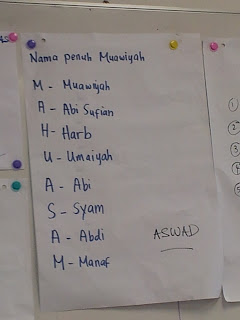 Nama penuh Muawiyah
M - Muawiyah
A - Abi Sufian
H - Harb
U - Umaiyah
A - Abi
S - Syam
A - Abdi
M - Manaf
ASWAD
1
2
3